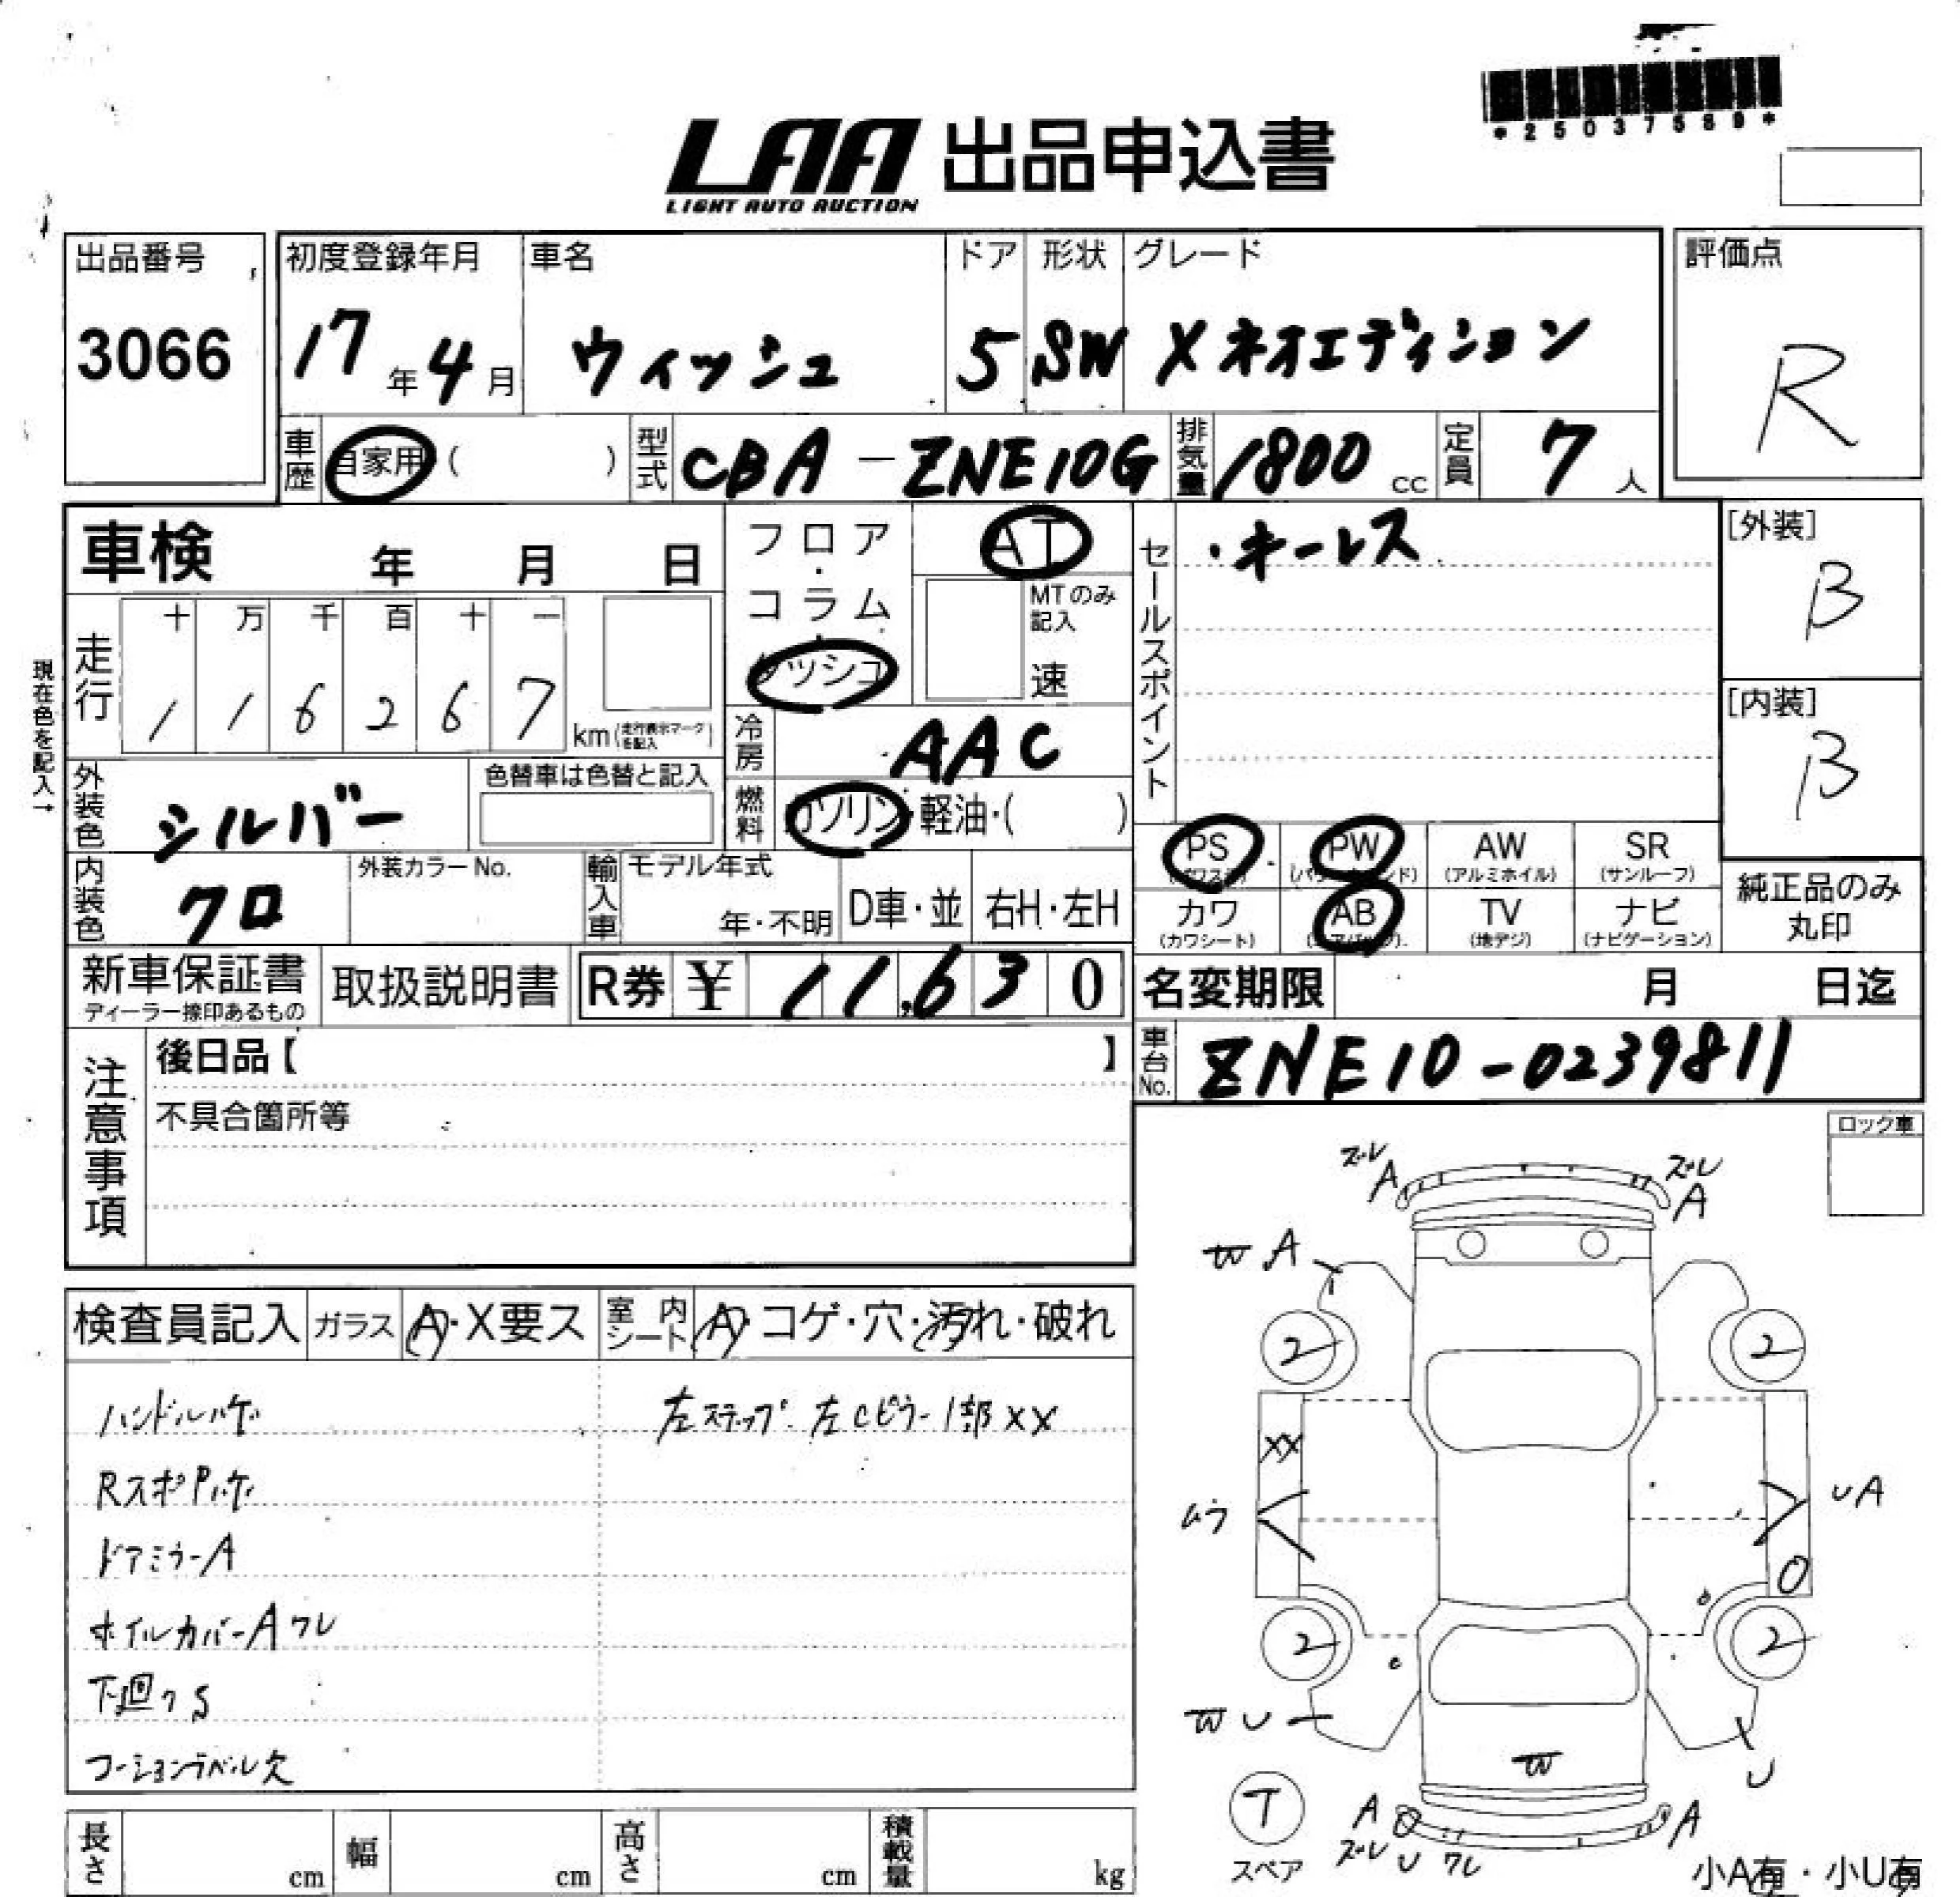 *25037589*
LAA 出品申込書
LIGHT AUTO AUCTION
出品番号 初度登録年月 車名 ドア 形状 グレード 評価点
3066 17年4月 ウィッシュ 5 SW Xネオエディション R
車歴 自家用 ( ) 型式 CBA-ZNE10G 排気量 1800 cc 定員 7 人
車検 年 月 日 フロア・コラム・ダッシュ AT セールスポイント ・キーレス [外装]
B
MTのみ記入 速
現在色を記入→
走行 十 万 千 百 十 一
1 1 6 2 6 7 km (走行表示マークを記入)
[内装]
B
冷房 AAC
外装色 シルバー 色替車は色替と記入 燃料 ガソリン・軽油・( )
PS (パワステ) PW (パワーウィンド) AW (アルミホイル) SR (サンルーフ)
内装色 クロ 外装カラーNo. 輸入車 モデル年式 年・不明 D車・並 右H・左H
カワ (カワシート) AB (エアバッグ) TV (地デジ) ナビ (ナビゲーション) 純正品のみ丸印
新車保証書 ディーラー捺印あるもの 取扱説明書 R券 ¥ 11,630 名変期限 月 日迄
注意事項 後日品【 】 車台No. ZNE10-0239811
不具合箇所等
ロック車
ズレ A ズレ A
W A
検査員記入 ガラス A・X要ス 室内シート A・コゲ・穴・汚れ・破れ
2 2
ハンドルハゲ 左ステップ 左Cピラー1部XX
XX
RスポPハゲ
ムラ UA
ドアミラーA
O
ホイルカバーAワレ
2 2
下廻りS
W U
コーションラベル欠
W U
T
スペア
A A
ズレ U ワレ
長さ cm 幅 cm 高さ cm 積載量 kg
小A有・小U有